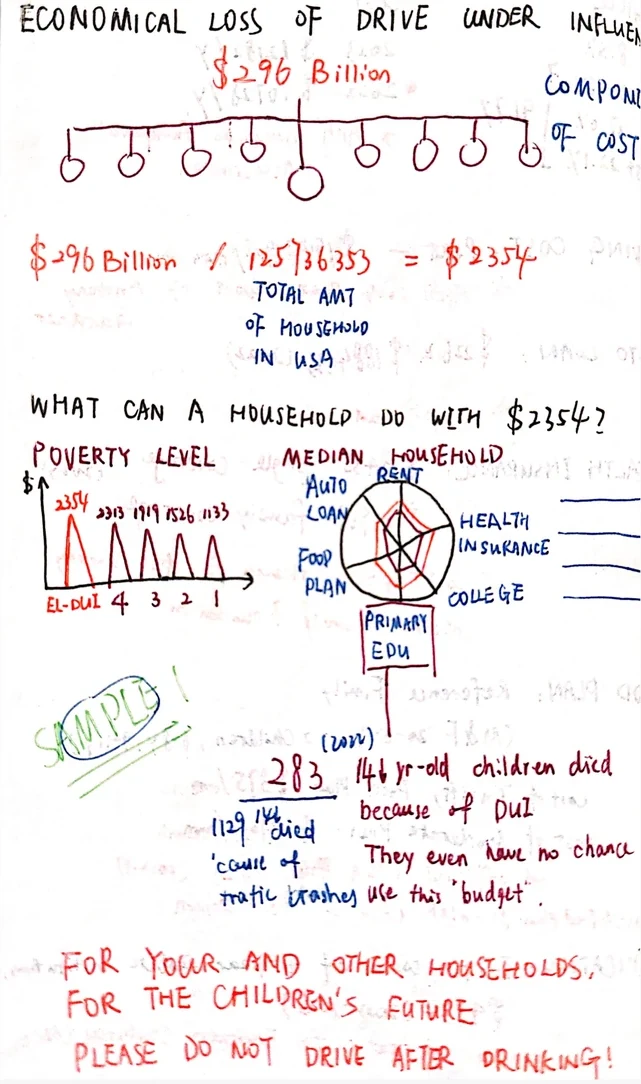 ECONOMICAL LOSS OF DRIVE UNDER INFLUEN
$296 Billion
COMPONE
OF COST
$296 Billion / 125736353 = $2354
TOTAL AMT
OF HOUSEHOLD
IN USA
WHAT CAN A HOUSEHOLD DO WITH $2354?
POVERTY LEVEL
$
2354 2313 1919 1526 1133
EL-DUI 4 3 2 1
MEDIAN HOUSEHOLD
RENT
AUTO
LOAN
HEALTH
INSURANCE
FOOD
PLAN
COLLEGE
PRIMARY
EDU
SAMPLE!
(2022)
283
1129 died
'cause of
trafic crashes
yr-old children died
because of DUI
They even have no chance
use this "budget".
FOR YOUR AND OTHER HOUSEHOLDS,
FOR THE CHILDREN'S FUTURE
PLEASE DO NOT DRIVE AFTER DRINKING!